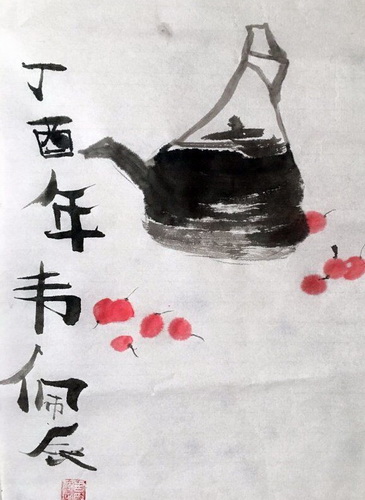 丁酉年韦佩辰